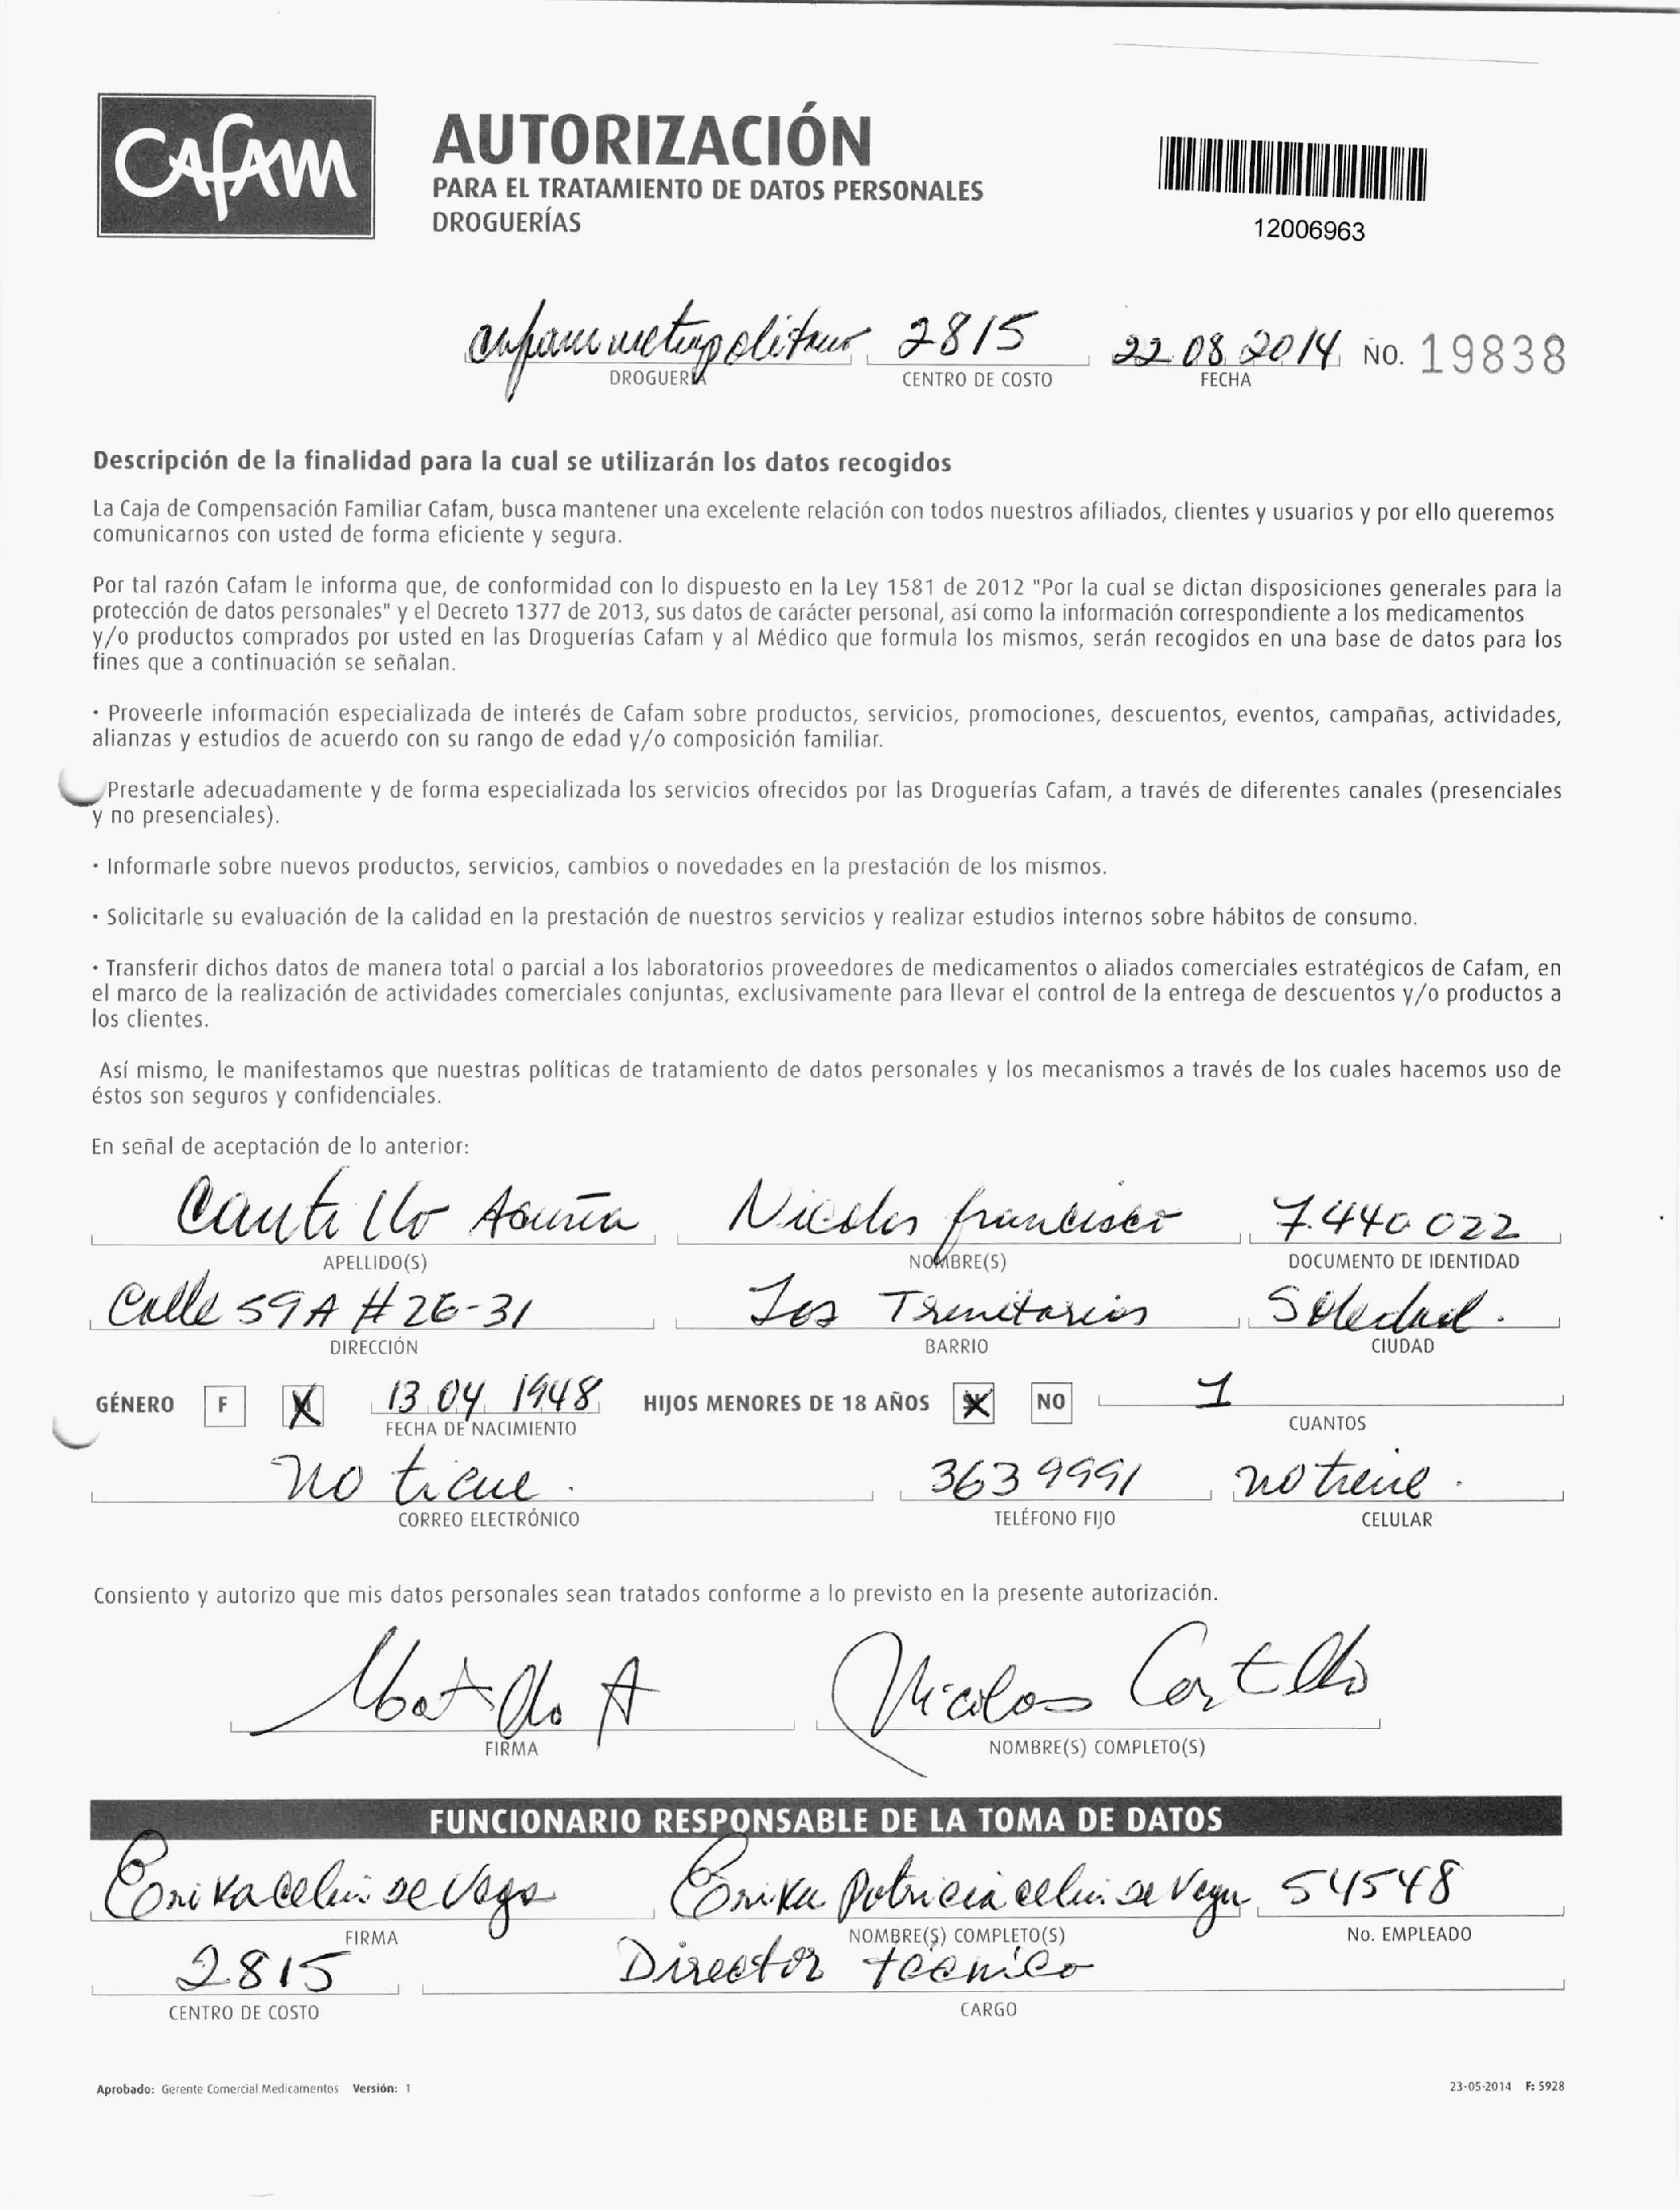 CAFAM
AUTORIZACIÓN
PARA EL TRATAMIENTO DE DATOS PERSONALES
DROGUERÍAS
12006963
2815 22.08.2014 NO. 19838
DROGUERÍA CENTRO DE COSTO FECHA
Descripción de la finalidad para la cual se utilizarán los datos recogidos
La Caja de Compensación Familiar Cafam, busca mantener una excelente relación con todos nuestros afiliados, clientes y usuarios y por ello queremos
comunicarnos con usted de forma eficiente y segura.
Por tal razón Cafam le informa que, de conformidad con lo dispuesto en la Ley 1581 de 2012 "Por la cual se dictan disposiciones generales para la
protección de datos personales" y el Decreto 1377 de 2013, sus datos de carácter personal, así como la información correspondiente a los medicamentos
y/o productos comprados por usted en las Droguerías Cafam y al Médico que formula los mismos, serán recogidos en una base de datos para los
fines que a continuación se señalan.
· Proveerle información especializada de interés de Cafam sobre productos, servicios, promociones, descuentos, eventos, campañas, actividades,
alianzas y estudios de acuerdo con su rango de edad y/o composición familiar.
Prestarle adecuadamente y de forma especializada los servicios ofrecidos por las Droguerías Cafam, a través de diferentes canales (presenciales
y no presenciales).
· Informarle sobre nuevos productos, servicios, cambios o novedades en la prestación de los mismos.
· Solicitarle su evaluación de la calidad en la prestación de nuestros servicios y realizar estudios internos sobre hábitos de consumo.
· Transferir dichos datos de manera total o parcial a los laboratorios proveedores de medicamentos o aliados comerciales estratégicos de Cafam, en
el marco de la realización de actividades comerciales conjuntas, exclusivamente para llevar el control de la entrega de descuentos y/o productos a
los clientes.
Así mismo, le manifestamos que nuestras políticas de tratamiento de datos personales y los mecanismos a través de los cuales hacemos uso de
éstos son seguros y confidenciales.
En señal de aceptación de lo anterior:
Cantillo Acuña Nicolas francisco 7.440022
APELLIDO(S) NOMBRE(S) DOCUMENTO DE IDENTIDAD
Calle 59A # 26-31 Los Trinitarios Soledad.
DIRECCIÓN BARRIO CIUDAD
GÉNERO F X 13 04 1948 HIJOS MENORES DE 18 AÑOS X NO 1
FECHA DE NACIMIENTO CUANTOS
no tiene. 3639991 no tiene.
CORREO ELECTRÓNICO TELÉFONO FIJO CELULAR
Consiento y autorizo que mis datos personales sean tratados conforme a lo previsto en la presente autorización.
Nicolas Cantillo
FIRMA NOMBRE(S) COMPLETO(S)
FUNCIONARIO RESPONSABLE DE LA TOMA DE DATOS
Erika de Vega Erika Patricia de Vega 54548
FIRMA NOMBRE(S) COMPLETO(S) No. EMPLEADO
2815 Director técnico
CENTRO DE COSTO CARGO
Aprobado: Gerente Comercial Medicamentos Versión: 1 23-05-2014 F: 5928